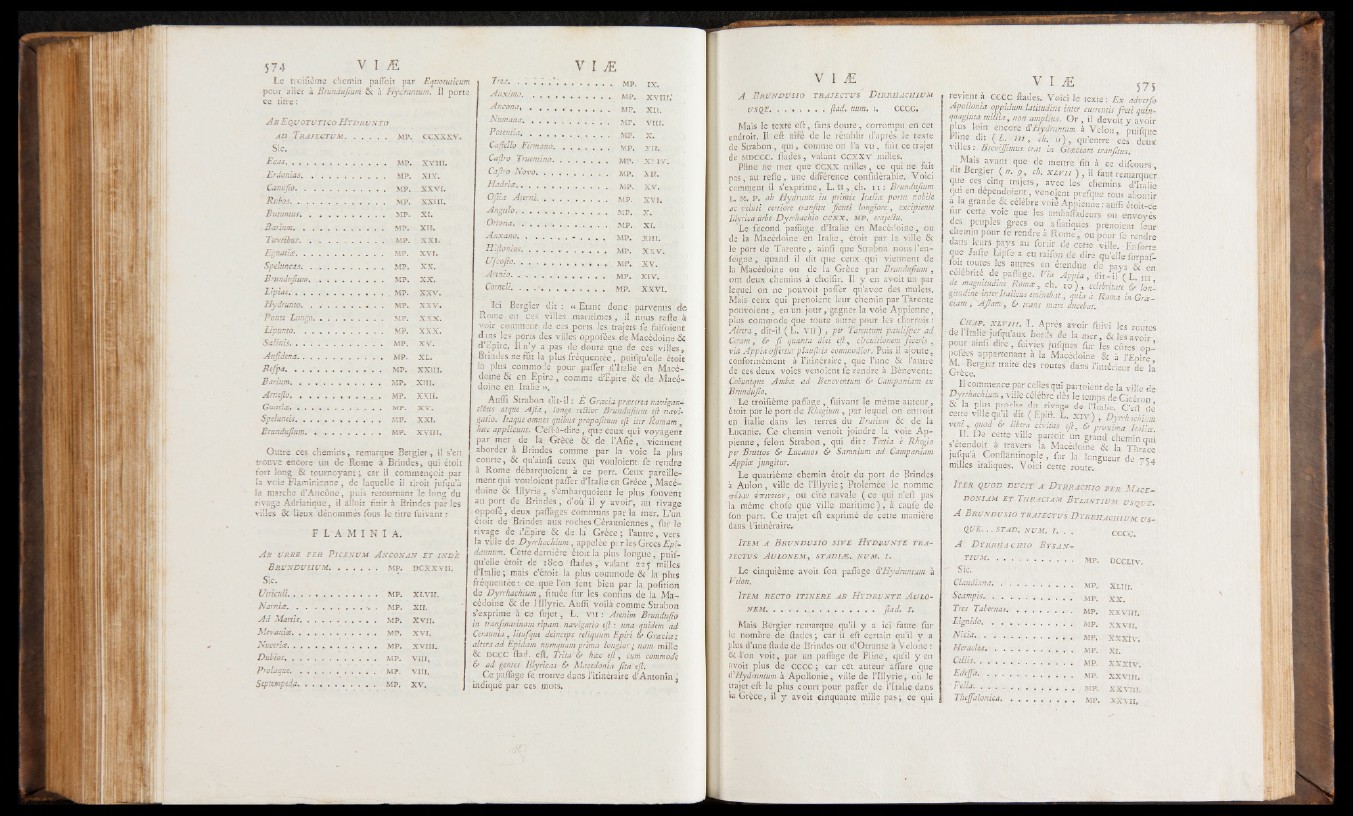 574 V I Æ
Le troisième chemin passoit par Equotuticum
pour aller à Brundusium & à Hydruntum. Il porte
ce titre :
AB EQUOTUTICO HYDRUNTO
AD TRAJECTUM. . . . . . MP. CCXXXV.
Sic.
Ecas. . . . . . . . . . . . . MP. XVIII.
Erdonias. . . . . . . . . . . . MP. XIX.
Canusio. . . . . . . . . . . . MP. XXVI.
Rubos. . . . . . . . . . . . . MP. XXIII.
Butuntus. . . . . . . . . . . . MP. XI.
Barium. . . . . . . . . . . . . MP. XII.
Turribus. . . . . . . . . . . . MP. XXI.
Egnatiæ. . . . . . . . . . . . MP. XVI.
Speluncas. . . . . . . . . . . . MP. XX.
Brundusium. . . . . . . . . . . MP. XX.
Lipias. . . . . . . . . . . . . MP. XXV.
Hydrunto. . . . . . . . . . . . MP. XXV.
Ponte Longo. . . . . . . . . . . MP. XXX.
Sipunto. . . . . . . . . . . . MP. XXX.
Salinis. . . . . . . . . . . . . MP. XV.
Aufidena. . . . . . . . . . . . MP. XL.
Respa. . . . . . . . . . . . . MP. XXIII.
Barium. . . . . . . . . . . . . MP. XIII.
Arnesto. . . . . . . . . . . . MP. XXII.
Gnatiæ. . . . . . . . . . . . MP. XV.
Speluncis. . . . . . . . . . . . MP. XXI.
Brundusium. . . . . . . . . . . MP. XVIII.
Outre ces chemins, remarque Bergier, il s'en
trouve encore un de Rome à Brindes, qui étoit
fort long & tournoyant ; car il commençoit par
la voie Flaminienne, de laquelle il tiroit jusqu'à
la marche d'Ancône, puis retournant le long du
rivage Adriatique, il alloit finir à Brindes par les
villes & lieux dénommés sous le titre suivant :
F L A M I N I A.
AB URBE PER PICENUM ANCONAM ET INDE
BRUNDUSIUM. . . . . . . MP. DCXXVII.
Sic.
Utriculi. . . . . . . . . . . . MP. XLVII.
Narniæ. . . . . . . . . . . . MP. XII.
Ad Martis. . . . . . . . . . . MP. XVII.
Mevaniæ. . . . . . . . . . . . MP. XVI.
Nuceriæ. . . . . . . . . . . . MP. XVIII.
Dubios. . . . . . . . . . . . . MP. VIII.
Prolaque. . . . . . . . . . . . MP. VIII.
Septempeda. . . . . . . . . . . MP. XV.
V I Æ
Trea. . . . . . . . . . . . . . MP. IX.
Auximo. . . . . . . . . . . . . MP. XVIII.
Ancona. . . . . . . . . . . . . MP. XII.
Numana. . . . . . . . . . . . . MP. VIII.
Potentia. . . . . . . . . . . . MP. X.
Castello Firmano. . . . . . . . . MP. XII.
Castro Truentino. . . . . . . . . MP. XXIV.
Castro Novo. . . . . . . . . . . MP. XII.
Hadriæ. . . . . . . . . . . . . MP. XV.
Ostia Aterni. . . . . . . . . . . MP. XVI.
Angulo. . . . . . . . . . . . . MP. X.
Ortona. . . . . . . . . . . . . MP. XI.
Anxano. . . . . . . . . . . . . MP. XIII.
Histonios. . . . . . . . . . . . MP. XXV.
Uscosio. . . . . . . . . . . . . MP. XV.
Arenio. . . . . . . . . . . . . MP. XIV.
Corneli. . . . . . . . . . . . . MP. XXVI.
Ici Bergier dit : « Etant donc parvenus de
Rome en ces villes maritimes, il nous reste à
voir comment de ces ports les trajets se faisoient
dans les ports des villes opposées de Macédoine &
d'Epire. Il n'y a pas de doute que de ces villes,
Brindes ne fût la plus fréquencée, puisqu'elle étoit
la plus commode pour passer d'Italie en Macé-
doine & en Epire, comme d'Epire & de Macé-
doine en Italie ».
Aussi Strabon dit-il : E Græciâ præterea navigan-
tibus atque Asiâ, longe rectior Brundusium est navi-
gatio. Itaque omnes quibus propositum est iter Romam,
huc applicant. C'est-à-dire, que ceux qui voyagent
par mer de la Grèce & de l'Asie, viennent
aborder à Brindes comme par la voie la plus
courte, & qu'ainsi ceux qui vouloient se rendre
à Rome débarquoient à ce port. Ceux pareille-
ment qui vouloient passer d'Italie en Grèce, Macé-
doine & Illyrie, s'embarquoient le plus souvent
au port de Brindes, d'où il y avoit, au rivage
opposé, deux passages communs par la mer. L'un
étoit de Brindes aux roches Cérauniennes, sur le
rivage de l'Epire & de la Grèce ; l'autre, vers
la ville de Dyrrhachium, appelée par les Grecs Epi-
damnum. Cette dernière étoit la plus longue, puis-
qu'elle étoit de 1800 stades, valant 225 milles
d'Italie ; mais c'étoit la plus commode & la plus
fréquentée : ce que l'on sent bien par la position
de Dyrrhachium, située sur les confins de la Ma-
cédoine & de l'Illyrie. Aussi voilà comme Strabon
s'exprime à ce sujet, L. VII : Atenim Brundusio
in transmarinam ripam navigatio est : una quidem ad
Ceraunia, litusque deinceps reliquum Epiri & Græciæ ;
altera ad Epidamnumquam prima longior ; nam mille
& DCCC stad. est. Trita & hæc est, cum commode
& ad gentes Illyricas & Macedonia sita est.
Ce passage se trouve dans l'itinéraire d'Antonin,
indiqué par ces mots.
V I Æ
A BRUNDUSIO TRAJECTUS DIRRHACHIUM
USQE. . . . . . . . stad. num. I. CCCC.
Mais le texte est, sans doute, corrompu en cet
endroit. Il est aisé de le rétablir d'après le texte
de Strabon, qui, comme on l'a vu, fait ce trajet
de MDCCC. stades, valant CCXXV milles.
Pline ne met que CCXX milles, ce qui ne fait
pas, au reste, une différence considérable. Voici
comment il s'exprime, L. II, ch. 11 : Brundusium
L. M. P. ab Hydrunte in primis Italiæ portu nobile
ac veluti certiore transitu sicuti longiore, excipiente
Illyrica urbe Dyrrhachio CCXX. MP. trajectu.
Le second passage d'Italie en Macédoine, ou
de la Macédoine en Italie, étoit par la ville &
le port de Tarente, ainsi que Strabon nous l'en-
seigne, quand il dit que ceux qui viennent de
la Macédoine ou de la Grèce par Brundusium,
ont deux chemins à choisir. Il y en avoit un par
lequel on ne pouvoit passer qu'avec des mulets.
Mais ceux qui prenoient leur chemin par Tarente
pouvoient, en un jour, gagner la voie Appienne,
plus commode que toute autre pour les charrois :
Altera, dit-il (L. VII), per Tarentum paulisper ad
lævam, & si quanta diei est, circuitionem feceris,
via Appia offertur plaustris commodior. Puis il ajoute,
conformément à l'itinéraire, que l'une & l'autre
de ces deux voies venoient se rendre à Bénevent :
Coëuntque Ambæ ad Beneventum & Campaniam ex
Brundusio.
Le troisième passage, suivant le même auteur,
étoit par le port de Rhegium, par lequel on entroit
en Italie dans les terres du Brutium & de la
Lucanie. Ce chemin venoit joindre la voie Ap-
pienne, selon Strabon, qui dit : Tertia è Rhegio
per Bruttos & Lucanos & Samnium ad Campaniam
Appiæ jungitur.
Le quatrième chemin étoit du port de Brindes
à Aulon, ville de l'Illyrie ; Ptolémée le nomme
ou cité navale (ce qui n'est pas
la même chose que ville maritime), à cause de
son port. Ce trajet est exprimé de cette manière
dans l'itinéraire.
ITEM A BRUNDUSIO SIVE HYDRUNTE TRA-
JECTUS AULONEM, STADIÆ. NUM. I.
Le cinquième avoit son passage d'Hydruntum à
Velon.
ITEM RECTO ITINERE AB HYDRUNTE AULO-
NEM. . . . . . . . . . . . . . . stad. I.
Mais Bergier remarque qu'il y a ici faute sur
le nombre de stades ; car il est certain qu'il y a
plus d'une stade de Brindes ou d'Otrante à Velone :
& l'on voit, par un passage de Pline, qu'il y en
avoit plus de CCCC ; car cet auteur assure que
d'Hydruntum à Apollonie, ville de l'Illyrie, où le
trajet est le plus court pour passer de l'Italie dans
la Grèce, il y avoit cinquante mille pas ; ce qui
V I Æ 575
revient à CCCC stades. Voici le texte : Ex adverso
Apollonia oppidum latitudine inter currentis freti quin-
quaginta millia, non amplius. Or, il devoit y avoir
plus loin encore d'Hydruntum à Velon, puisque
Pline dit (L. III, ch. 11), qu'entre ces deux
villes : Brevissimus erat in Græciam transitus.
Mais avant que de mettre fin à ce discours,
dit Bergier (n. 9, ch. XLVII), il faut remarquer
que ces cinq trajets, avec les chemins d'Italie
qui en dépendoient, venoient presque tous aboutir
à la grande & célèbre voie Appienne : aussi étoit-ce
sur cette voie que les ambassadeurs ou envoyés
des peuples grecs ou asiatiques prenoient leur
chemin pour se rendre à Rome, ou pour se rendre
dans leurs pays au sortir de cette ville. Ensorte
que Juste Lipse a eu raison de dire qu'elle surpas-
soit toutes les autres en étendue de pays & en
célébrité de passage. Via Appia, dit-il (L. III,
de magnitudine Romæ, ch. 10), celebritate & lon-
gitudine inter Italicas eminebat, quia à Roma in Græ-
ciam, Asiam, & trans mare ducebat.
CHAP. XLVIII. I. Après avoir suivi les routes
de l'Italie jusqu'aux bords de la mer, & les avoir,
pour ainsi dire, suivies jusques sur les côtes op-
posées appartenant à la Macédoine & à l'Epire,
M. Bergier traite des routes dans l'intérieur de la
Grèce.
Il commence par celles qui partoient de la ville de
Dyrrhachium, ville célèbre dès le temps de Cicéron,
& la plus proche du rivage de l'Italie. C'est de
cette ville qu'il dit (Epist. L. XIV), Dyrrhachium
veni, quod & libera civitas est, & proxima Italiæ.
II. De cette ville partoit un grand chemin qui
s'étendoit à travers la Macédoine & la Thrace
jusqu'à Constantinople, sur la longueur de 754
milles italiques. Voici cette route.
ITER QUOD DUCIT A DYRRACHIO PER MACE-
DONIAM ET THRACIAM BYZANTIUM USQUE.
A BRUNDUSIO TRAJECTUS DYRRHACHIUM US-
QUE. . . STAD. NUM. I. . . CCCC.
A DYRRHACHIO BYSAN-
TIUM. . . . . . . . . . . . . MP. DCCLIV.
Sic.
Claudiana. . . . . . . . . . . MP. XLIII.
Scampis. . . . . . . . . . . . MP. XX.
Tres Tabernas. . . . . . . . . . MP. XXVIII.
Lignido. . . . . . . . . . . . MP. XXVII.
Nicia. . . . . . . . . . . . . MP. XXXIV.
Heraclea. . . . . . . . . . . . MP. XI.
Cillis. . . . . . . . . . . . . MP. XXXIV.
Edessa. . . . . . . . . . . . . MP. XXVIII.
Pella. . . . . . . . . . . . . MP. XXVIII.
Thessalonica. . . . . . . . . . MP. XXVII.